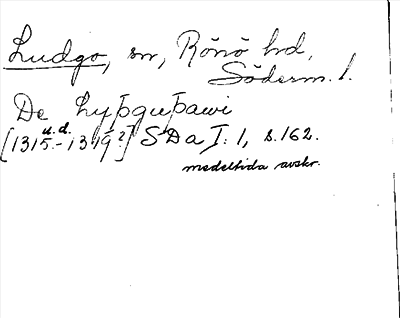 Ludgo, sn, Rönö hd,
Söderm. l.
De Lyþguþawi
u. d.
[1315 - 1319?] SDa I: 1, s. 162.
medeltida avskr.